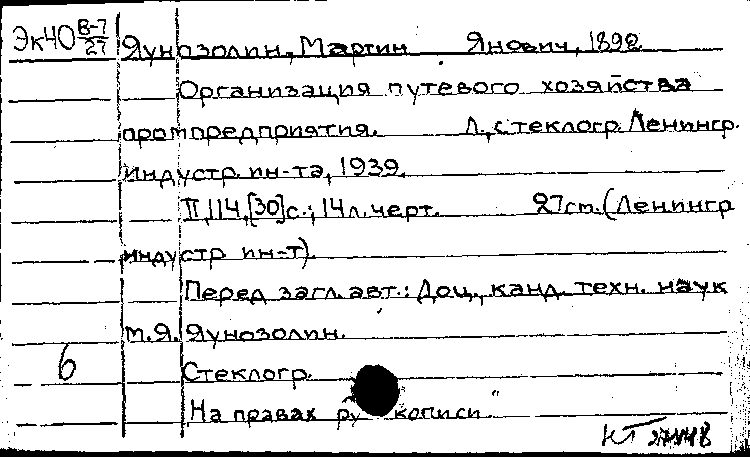 Эк40 В-7/27 Яунозолин, Мартин Янович, 1892
Организация путевого хозяйства
промпредприятия. Л., стеклогр. Ленингр.
индустр. ин-та, 1939.
II, 114, [30] с.; 14 л. черт. 27 см. (Ленингр
индустр ин-т).
Перед загл. авт.: Доц., канд. техн. наук
М.Я. Яунозолин.
6 Стеклогр.
"На правах рукописи"
КП